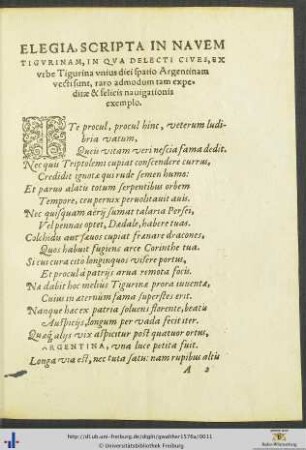 ELEGIA. SCRIPTA IN NAVEM
TIGVRINAM, IN QVA DELECTI CIVES, EX
vrbe Tigurina vnius diei spatio Argentinam
vecti sunt, raro admodum tam expe-
ditæ & felicis nauigationis
exemplo.
ITe procul, procul hinc, veterum ludi-
bria vatum,
Queis vitam veri nescia fama dedit.
Nec quis Triptolemi cupiat conscendere currus,
Credidit ignota qui rude semen humo:
Et paruo alati totum serpentibus orbem
Tempore, ceu pernix peruolitauit auis.
Nec quisquam aërij sumat talaria Persei,
Vel pennas optet, Dædale, habere tuas.
Colchidos aut sæuos cupiat frænare dracones,
Quos habuit fugiens arce Corinthe tua.
Si cui cura cito longinquos visere portus,
Et procul à patrijs arua remota focis.
Nã dabit hoc melius Tigurinæ prora iuuentæ,
Cuius in æternum fama superstes erit.
Nanque hac ex patria soluens florente, beatu
Auspicijs, longum per vada fecit iter.
Quæq; alijs vix aspicitur post quatuor ortus,
ARGENTINA, vna luce petita fuit.
Longa via est, nec tuta satis: nam rupibus altis
A 2
http://dl.ub.uni-freiburg.de/diglit/gwalther1576a/0011
© Universitätsbibliothek Freiburg
Baden-Württemberg